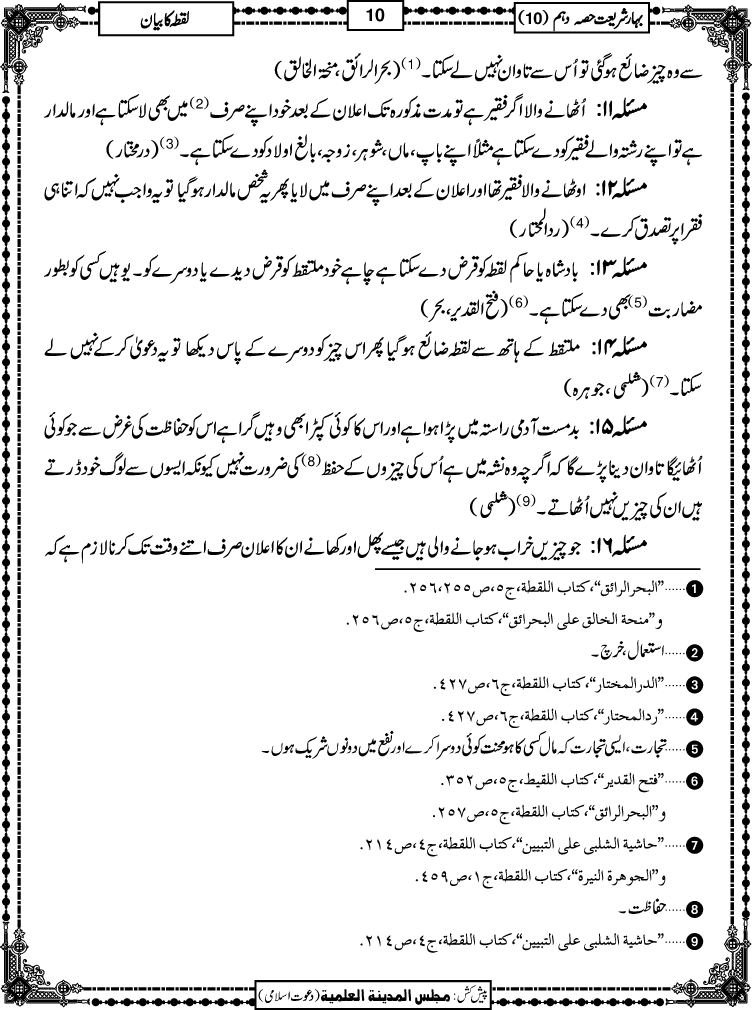 بہارِ شریعت حصہ دہم (10)
10
لقطہ کا بیان
سے وہ چیز ضائع ہوگئی تو اُس سے تاوان نہیں لے سکتا۔(1) (بحرالرائق، منحۃ الخالق)
مسئلہ ۱۱: اُٹھانے والا اگر فقیر ہے تو مدت مذکورہ تک اعلان کے بعد خود اپنے صرف(2) میں بھی لاسکتا ہے اور مالدار
ہے تو اپنے رشتہ والے فقیر کو دے سکتا ہے مثلاً اپنے باپ، ماں، شوہر، زوجہ، بالغ اولاد کو دے سکتا ہے۔(3) (درمختار)
مسئلہ ۱۲: اوٹھانے والا فقیر تھا اور اعلان کے بعد اپنے صرف میں لایا پھر یہ شخص مالدار ہوگیا تو یہ واجب نہیں کہ اتنا ہی
فقرا پر تصدق کرے۔(4) (ردالمحتار)
مسئلہ ۱۳: بادشاہ یا حاکم لقطہ کو قرض دے سکتا ہے چاہے خود ملتقط کو قرض دیدے یا دوسرے کو۔ یوہیں کسی کو بطور
مضاربت(5) بھی دے سکتا ہے۔(6) (فتح القدیر، بحر)
مسئلہ ۱۴: ملتقط کے ہاتھ سے لقطہ ضائع ہوگیا پھر اس چیز کو دوسرے کے پاس دیکھا تو یہ دعویٰ کرکے نہیں لے
سکتا۔(7) (شلبی، جوہرہ)
مسئلہ ۱۵: بدمست آدمی راستہ میں پڑا ہوا ہے اور اس کا کوئی کپڑا بھی وہیں گرا ہے اس کو حفاظت کی غرض سے جو کوئی
اُٹھائیگا تاوان دینا پڑے گا کہ اگرچہ وہ نشہ میں ہے اُس کی چیزوں کے حفظ(8) کی ضرورت نہیں کیونکہ ایسوں سے لوگ خود ڈرتے
ہیں ان کی چیزیں نہیں اُٹھاتے۔(9) (شلبی)
مسئلہ ۱۶: جو چیزیں خراب ہو جانے والی ہیں جیسے پھل اور کھانے ان کا اعلان صرف اتنے وقت تک کرنا لازم ہے کہ
1......"البحرالرائق"، کتاب اللقطة، ج٥، ص٢٥٥، ٢٥٦.
و"منحة الخالق على البحرالرائق"، کتاب اللقطة، ج٥، ص٢٥٦.
2......استعمال، خرچ۔
3......"الدرالمختار"، کتاب اللقطة، ج٦، ص٤٢٧.
4......"ردالمحتار"، کتاب اللقطة، ج٦، ص٤٢٧.
5......تجارت، ایسی تجارت کہ مال کسی کا ہو محنت کوئی دوسرا کرے اور نفع میں دونوں شریک ہوں۔
6......"فتح القدير"، کتاب اللقيط، ج٥، ص٣٥٢.
و"البحرالرائق"، کتاب اللقطة، ج٥، ص٢٥٧.
7......"حاشية الشلبي على التبيين"، کتاب اللقطة، ج٤، ص٢١٤.
و"الجوهرة النيرة"، کتاب اللقطة، ج١، ص٤٥٩.
8......حفاظت۔
9......"حاشية الشلبي على التبيين"، کتاب اللقطة، ج٤، ص٢١٤.
پیش کش: مجلس المدینة العلمیة (دعوت اسلامی)